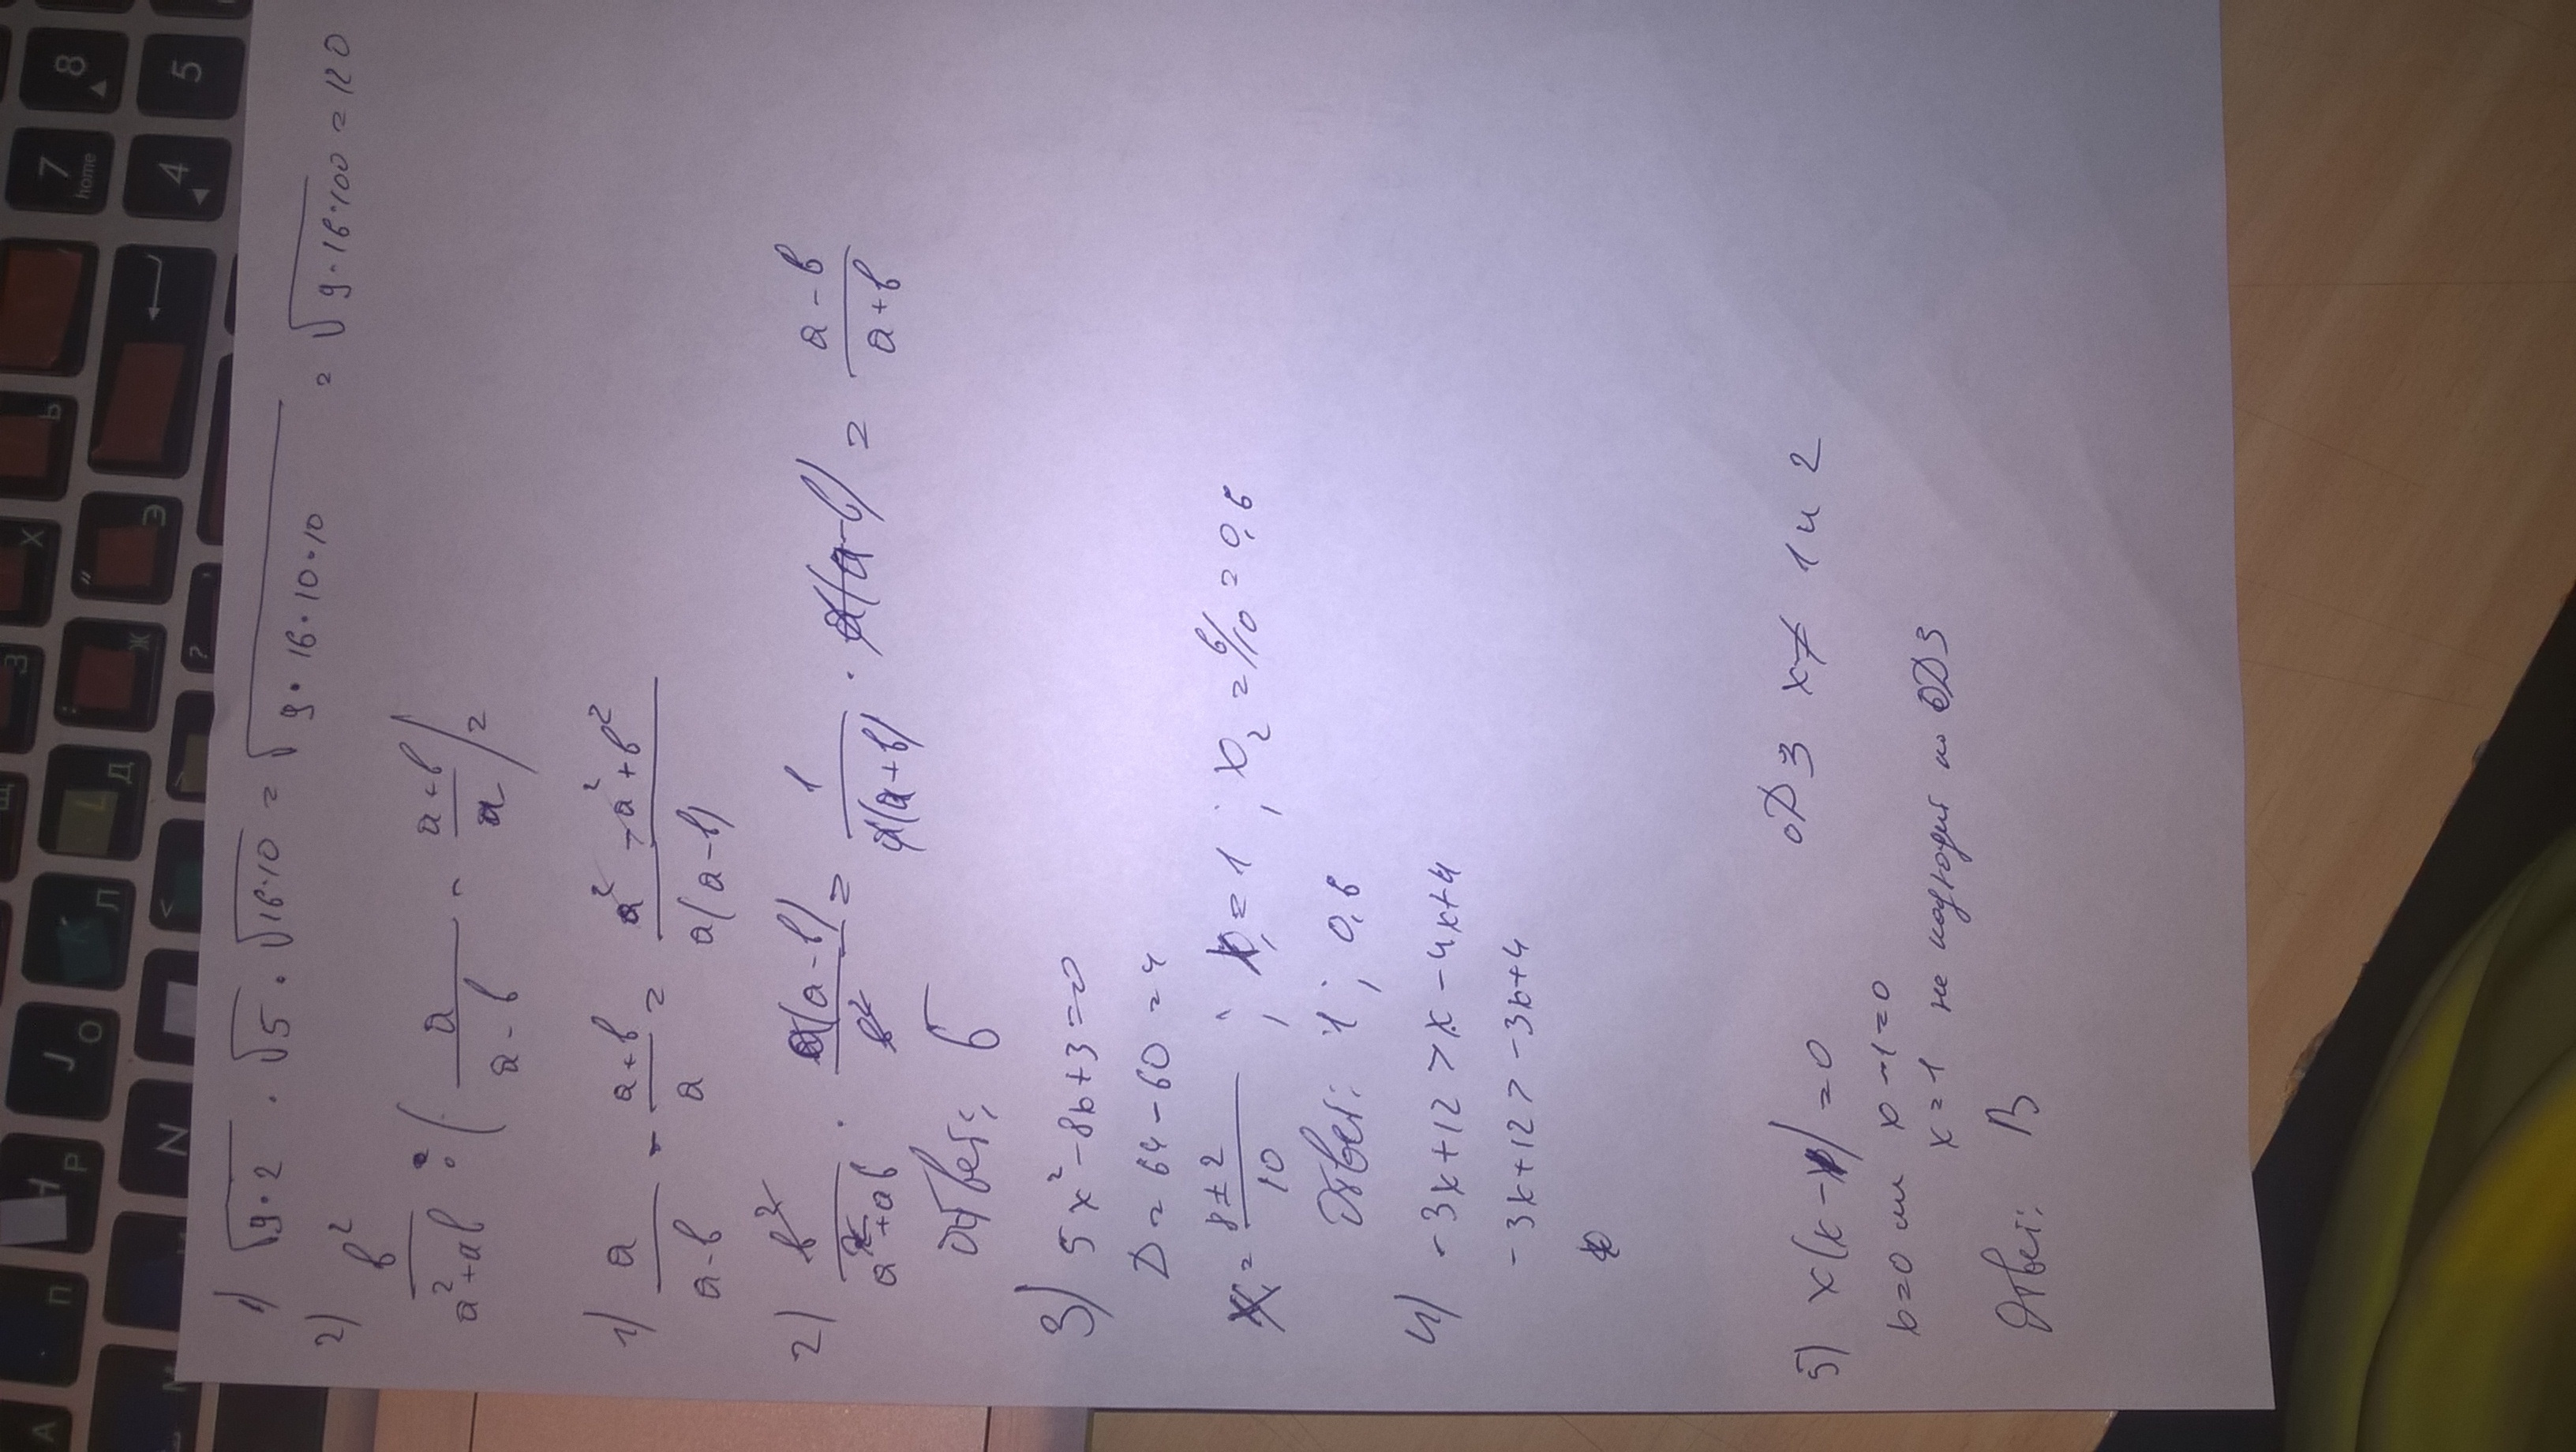 1) √9·2 · √5 · √16·10 = √9·16·10·10 = √9·16·100 = 120
2) b²/(a²+ab) : (a/(a-b) - (a+b)/a) =
1) a/(a-b) - (a+b)/a = (a² - a² + b²)/(a(a-b))
2) b²/(a²+ab) · a(a-b)/b² = 1/(a(a+b)) · a(a-b) = (a-b)/(a+b)
Ответ: б
3) 5x² - 8x + 3 = 0
D = 64 - 60 = 4
x = (8±2)/10 ; x₁ = 1 ; x₂ = 6/10 = 0,6
Ответ: 1 ; 0,6
4) -3x+12 > x - 4x+4
-3x+12 > -3x+4
5) x(x-1) = 0 ОДЗ x ≠ 1 и 2
x=0 или x-1=0
x=1 не подходит по ОДЗ
Ответ: В
8 5
7 home 4